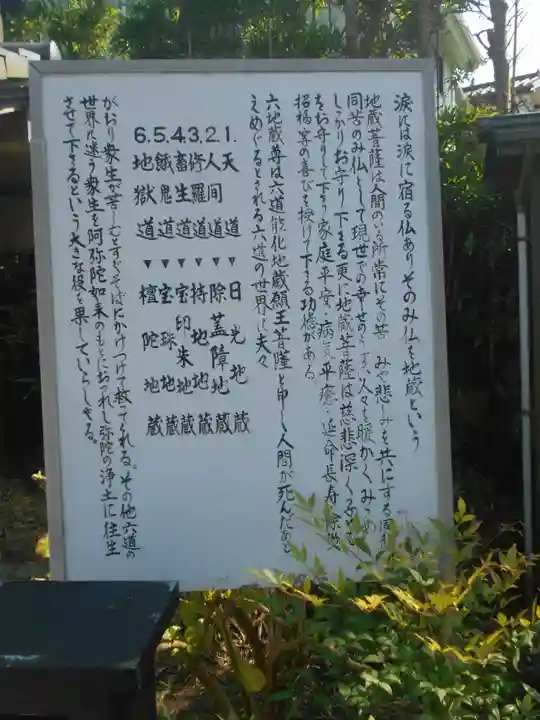 涙には涙に宿る仏ありそのみ仏を地蔵という
地蔵菩薩は人間のいる所常にその苦しみや悲しみを共にする同悲
同苦のみ仏として現世での幸せのうすい人々を暖かくみつめ
しっかりお守り下さる更に地蔵菩薩は慈悲深く
をお守りして下さり家庭平安・病気平癒・延命長寿・除災
招福等の喜びを授けて下さる功徳がある
六地蔵尊は六道能化地蔵願王菩薩と申し人間が死んだあと
えめぐるとされる六道の世界に夫々
1.天道▼日光地蔵
2.人间道▼除蓋障地蔵
3.修羅道▼持地地蔵
4.畜生道▼宝印朱地蔵
5.餓鬼道▼宝珠地蔵
6.地獄道▼檀陀地蔵
がおり衆生が苦しむとすぐそばにかけつけて救って下られる。その他六道の
世界に迷う衆生を阿弥陀如来のもとにおつれし弥陀の浄土に往生
させて下さるという大きな役を果していらしゃる。